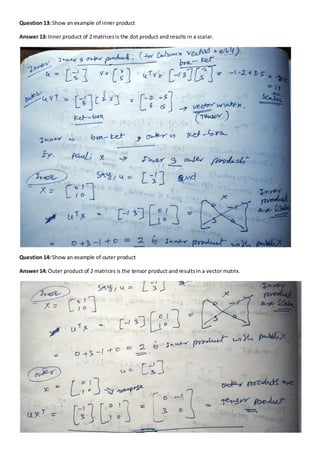 Question 13: Show an example of inner product
Answer 13: Inner product of 2 matrices is the dot product and results in a scalar.
Inner & outer products. (for column vectors only).
bra-ket
u = [-1 3] v = [2 5] uᵀv = [-1 3] [2 5] = -1·2 + 3·5 =
= 13
scalar
outer
uvᵀ = [-1 3] [2 5] = [-2 -5 6 15] → vector matrix.
(Tensor)
ket-bra
Inner is bra-ket & outer is ket-bra
Ex. Pauli x → Inner & outer products
Inner
say, u = [-1 3] and
Inner product are scalar
X = [0 1 1 0]
uᵀx = [-1 3] [0 1 1 0] =
= 0+3-1+0 = 2 is Inner product with pauli X.
Question 14: Show an example of outer product
Answer 14: Outer product of 2 matrices is the tensor product and results in a vector matrix.
Inner
say, u = [-1 3]
Inner product are scalar
X = [0 1 1 0]
uᵀx = [-1 3] [0 1 1 0] =
= 0+3-1+0 = 2 is Inner product with pauli X.
outer
u = [-1 3]
x = [0 1 1 0] transpose
outer products are
uxᵀ = [-1 3] [0 1 1 0] = 0 -1 3 0 = Tensor product